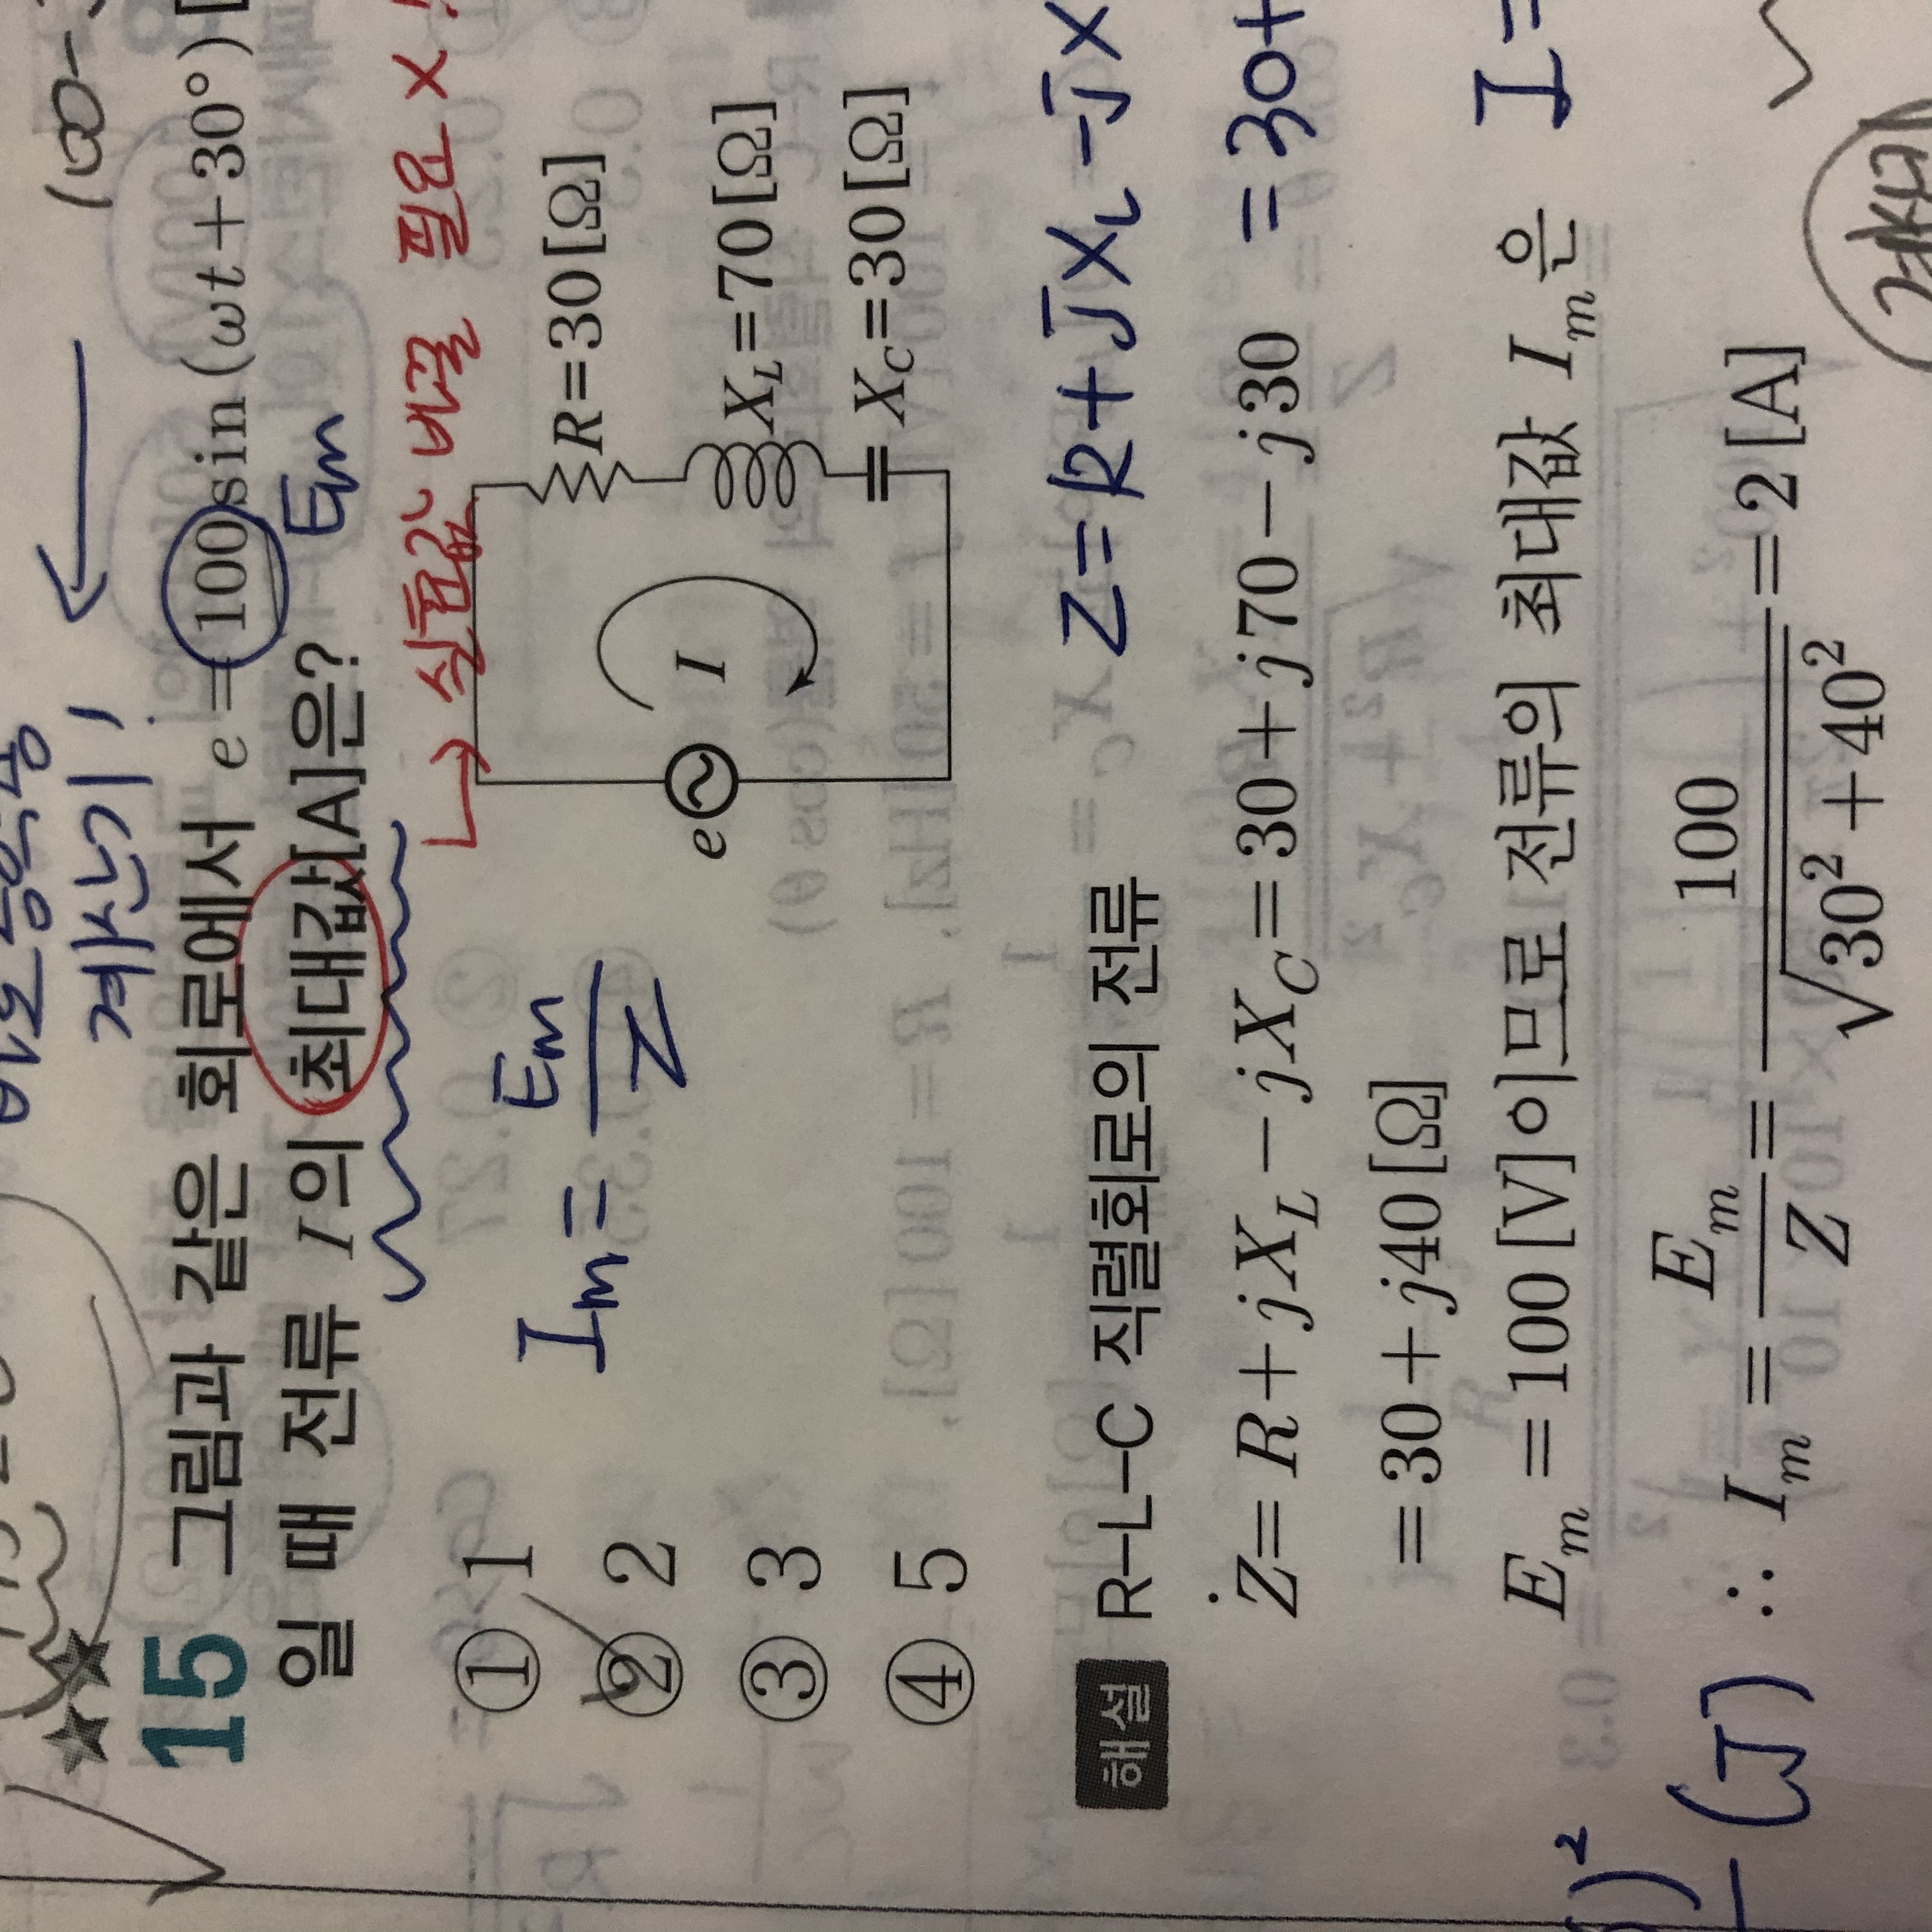 계산기!
15 그림과 같은 회로에서 e = 100sin(ωt+30°)
Em
일 때 전류 I의 최대값[A]은?
→ 실효값 바꿀 필요 X
① 1
② 2
③ 3
④ 5
Im = Em/Z
e
I
R=30[Ω]
X_L=70[Ω]
X_C=30[Ω]
해설 R-L-C 직렬회로의 전류
Z = R + jXL - jX
Ż = R + jX_L - jX_C = 30 + j70 - j30
= 30+
= 30 + j40[Ω]
E_m = 100[V]이므로 전류의 최대값 I_m은
I =
∴ I_m = E_m/Z = 100/√(30²+40²) = 2[A]